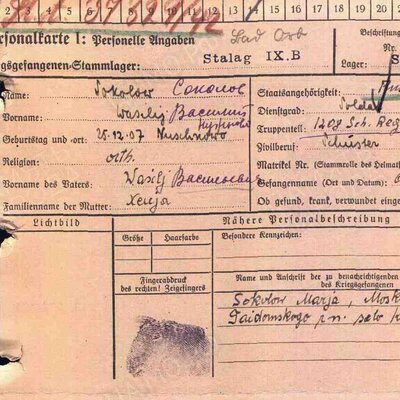 2 3 4 5 6 7 8 9 10 11 12 13 14 15 16 17 18 19 20
rsonalkarte I: Personelle Angaben
Bad Orb
Beschriftung
egsgefangenen-Stammlager: Stalag IX.B
Lager: S
Name: Sokolow Соколов
Vorname: Wasilij Василий
Geburtstag und -ort: 25.12.07
Religion: orth.
Vorname des Vaters: Васильевич
Familienname der Mutter:
Staatsangehörigkeit:
Dienstgrad: Soldat
Truppenteil: 1208 Sch. Reg
Zivilberuf: Schuster
Matrikel Nr. (Stammrolle des Heimat
Gefangennahme (Ort und Datum):
Ob gesund, krank, verwundet einge
Lichtbild
Nähere Personalbeschreibung
Größe Haarfarbe Besondere Kennzeichen:
Fingerabdruck
des rechten! Zeigefingers
Name und Anschrift der zu benachrichtigenden
des Kriegsgefangenen
Sokolow Marja, Mosk